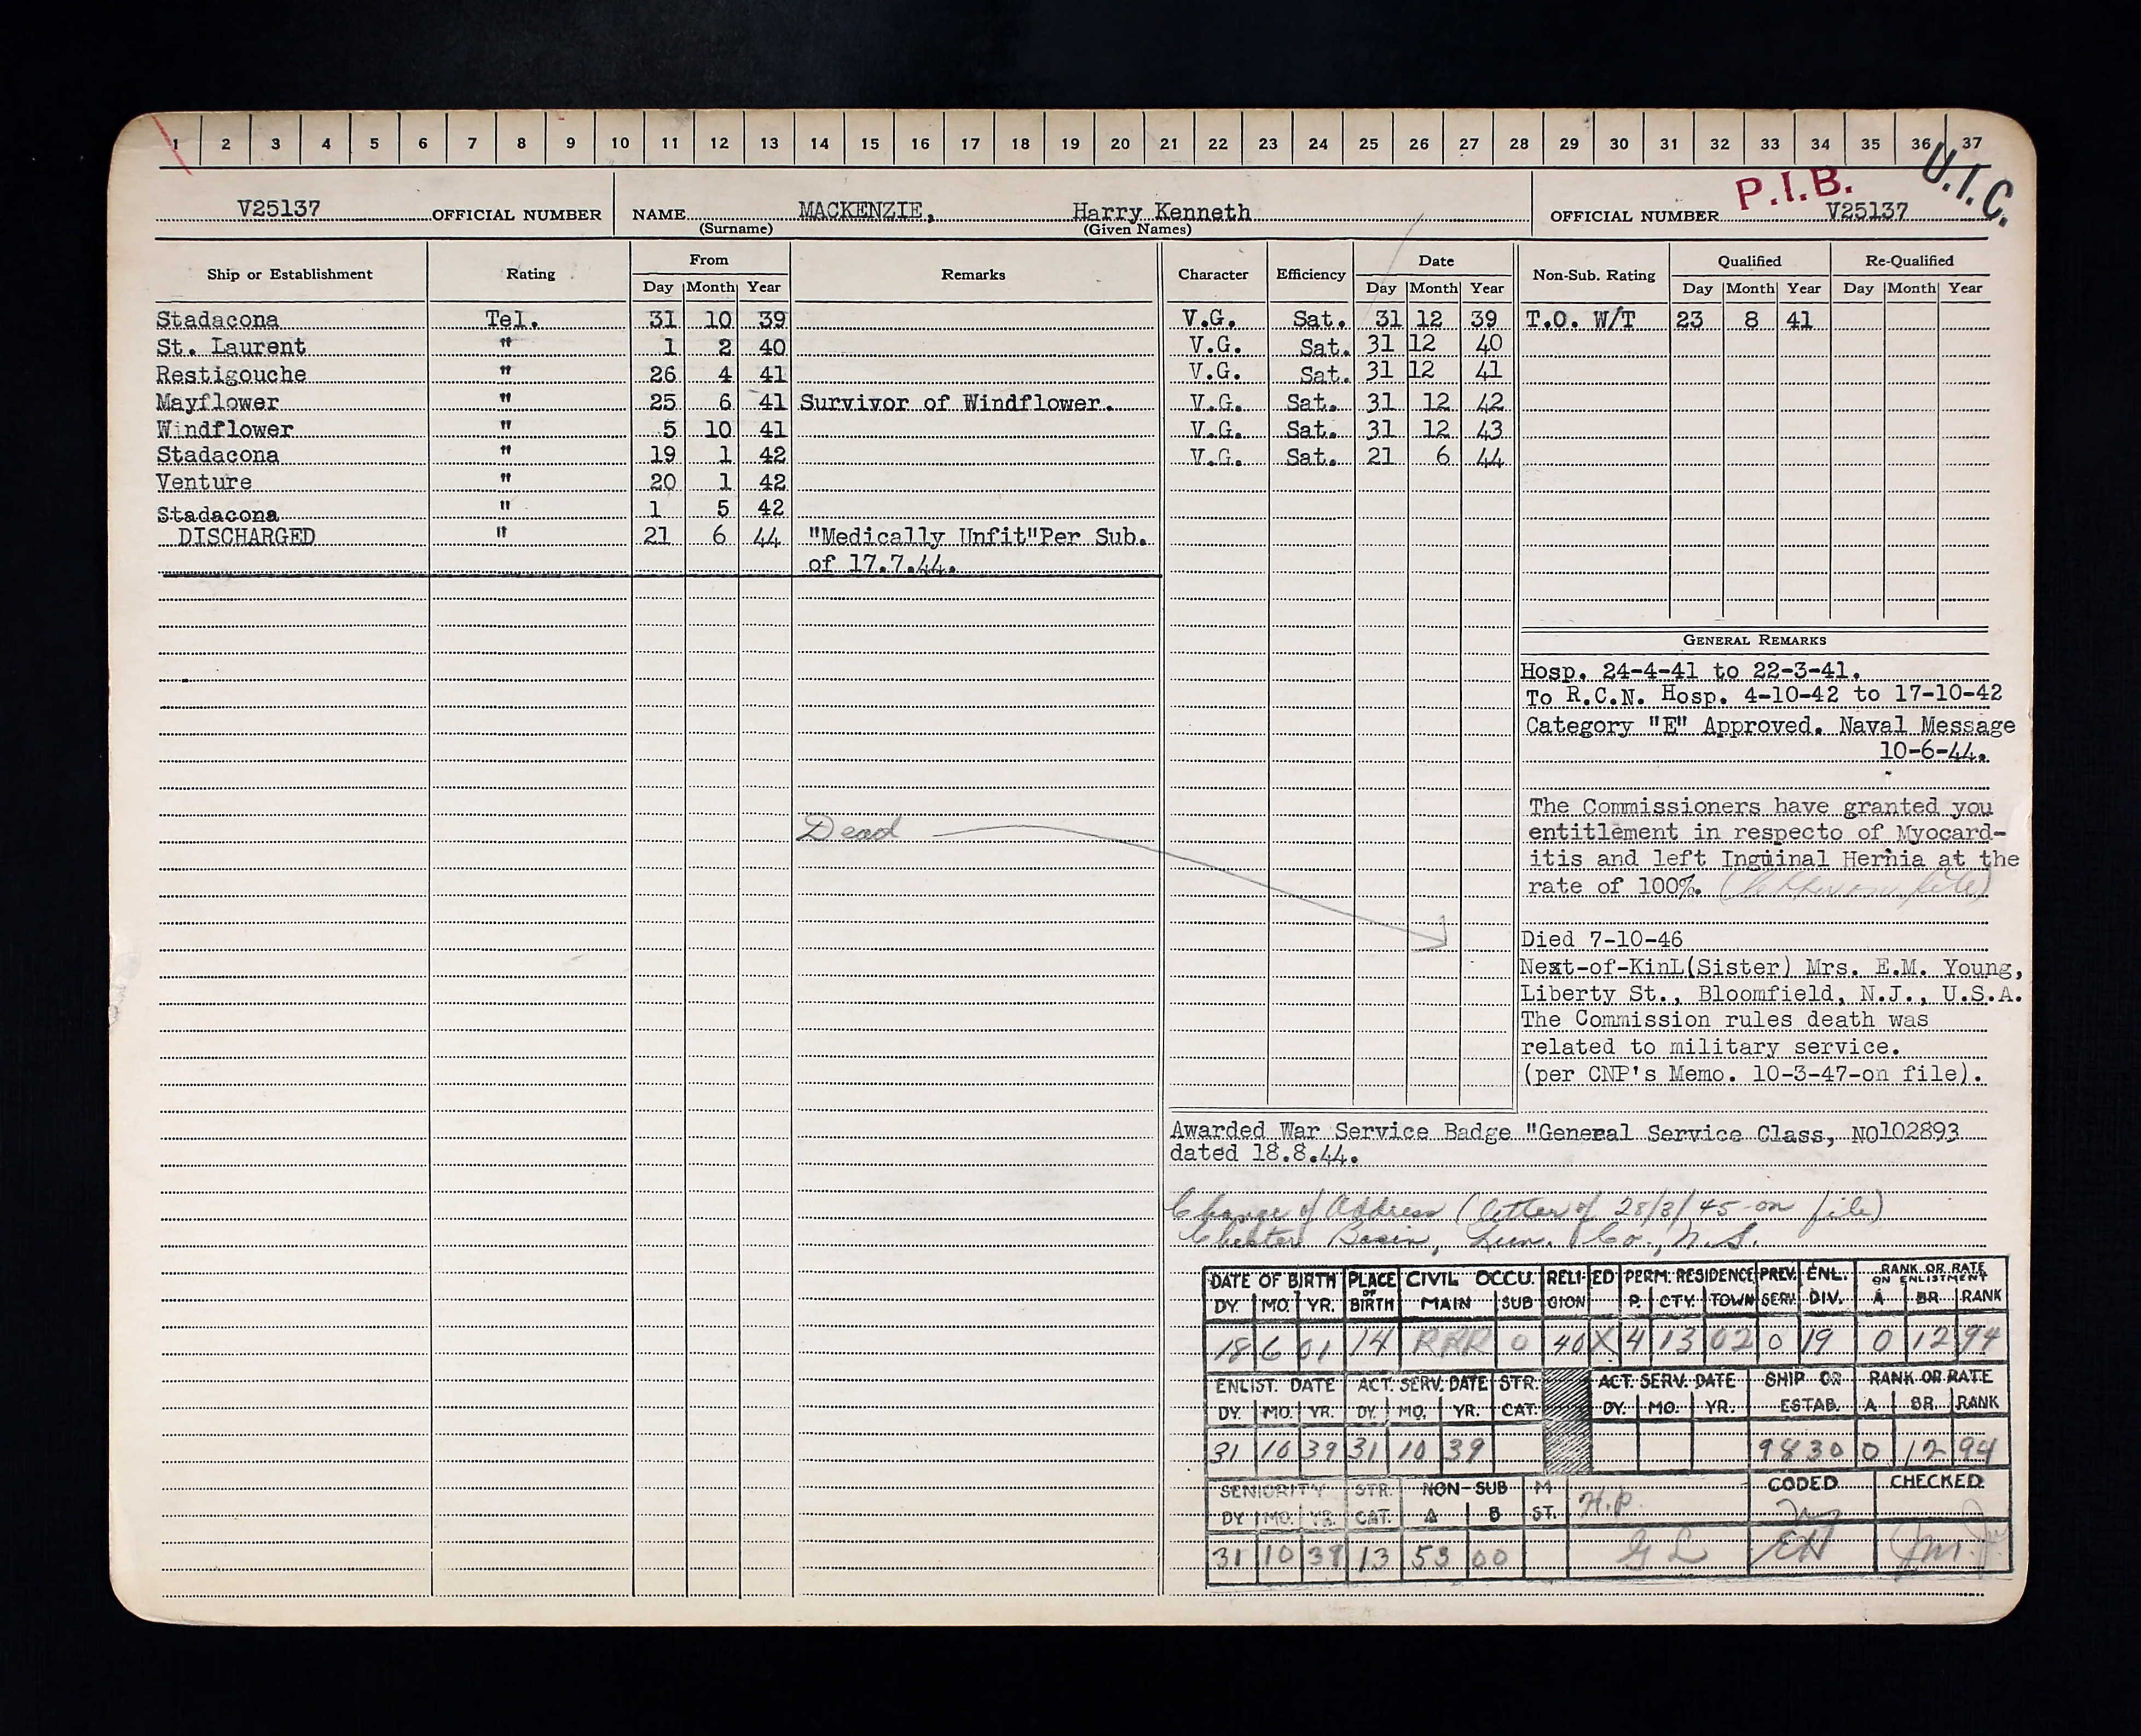 1 2 3 4 5 6 7 8 9 10 11 12 13 14 15 16 17 18 19 20 21 22 23 24 25 26 27 28 29 30 31 32 33 34 35 36 37
P.I.B. U.I.C.
V25137 OFFICIAL NUMBER NAME MACKENZIE, Harry Kenneth OFFICIAL NUMBER V25137
(Surname) (Given Names)
Ship or Establishment Rating From Remarks Character Efficiency Date Non-Sub. Rating Qualified Re-Qualified
Day Month Year Day Month Year Day Month Year Day Month Year
Stadacona Tel. 31 10 39 V.G. Sat. 31 12 39 T.O. W/T 23 8 41
St. Laurent " 1 2 40 V.G. Sat. 31 12 40
Restigouche " 26 4 41 V.G. Sat. 31 12 41
Mayflower " 25 6 41 Survivor of Windflower. V.G. Sat. 31 12 42
Windflower " 5 10 41 V.G. Sat. 31 12 43
Stadacona " 19 1 42 V.G. Sat. 21 6 44
Venture " 20 1 42
Stadacona " 1 5 42
DISCHARGED " 21 6 44 "Medically Unfit"Per Sub.
of 17.7.44.
GENERAL REMARKS
Hosp. 24-4-41 to 22-3-41.
To R.C.N. Hosp. 4-10-42 to 17-10-42
Category "E" Approved. Naval Message
10-6-44.
The Commissioners have granted you
entitlement in respecto of Myocard-
itis and left Inguinal Hernia at the
rate of 100%. (Letter on file)
Dead
Died 7-10-46
Next-of-KinL(Sister) Mrs. E.M. Young,
Liberty St., Bloomfield, N.J., U.S.A.
The Commission rules death was
related to military service.
(per CNP's Memo. 10-3-47-on file).
Awarded War Service Badge "General Service Class, NO102893
dated 18.8.44.
Change of Address (letter of 28/3/45 on file)
Chester Basin, Lun. Co., N.S.
DATE OF BIRTH PLACE OF BIRTH CIVIL OCCU. RELIGION ED PERM. RESIDENCE PREV. SERV. ENL. DIV. RANK OR RATE ON ENLISTMENT
DY. MO. YR. MAIN SUB P. CTY. TOWN A BR. RANK
18 6 01 14 0 40 X 4 13 02 0 19 0 12 94
ENLIST. DATE ACT. SERV. DATE STR. CAT. ACT. SERV. DATE SHIP OR ESTAB. RANK OR RATE
DY. MO. YR. DY. MO. YR. DY. MO. YR. A BR. RANK
31 10 39 31 10 39 9830 0 12 94
SENIORITY STR. CAT. NON-SUB M. ST. H.P. CODED CHECKED
DY MO. YR. A B
31 10 39 13 53 00 G L EH